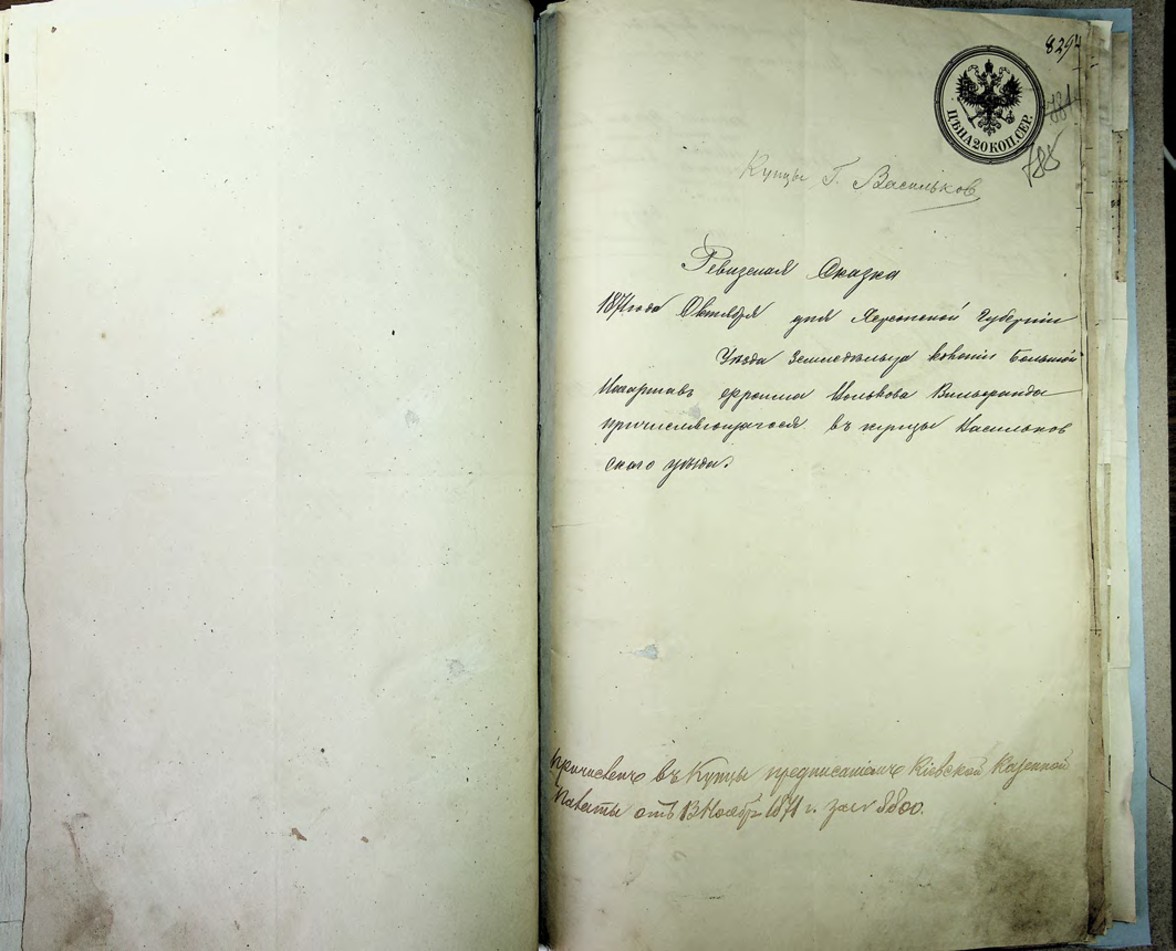 829
ЦѢНА 20 КОП. СЕР.
784
785
Купцы Г. Васильков
Ревизская Сказка
1871 года Октября дня Херсонской Губернiи
Уѣзда Земледѣльца колонiи Большой
Фроима Волькова
причисляющагося въ купцы Васильков
скаго уѣзда.
Причисленъ въ Купцы предписанiемъ Кiевской Казенной
Палаты отъ 13 Ноября 1871 г. за №